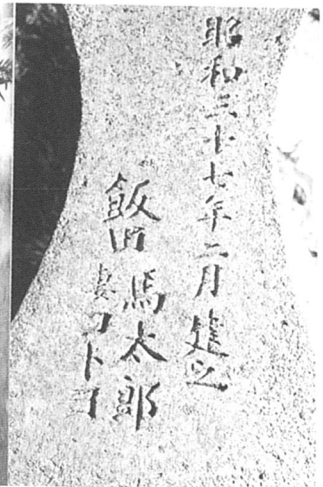 昭和三十七年二月建之
飯田馬太郎
妻コトヨ